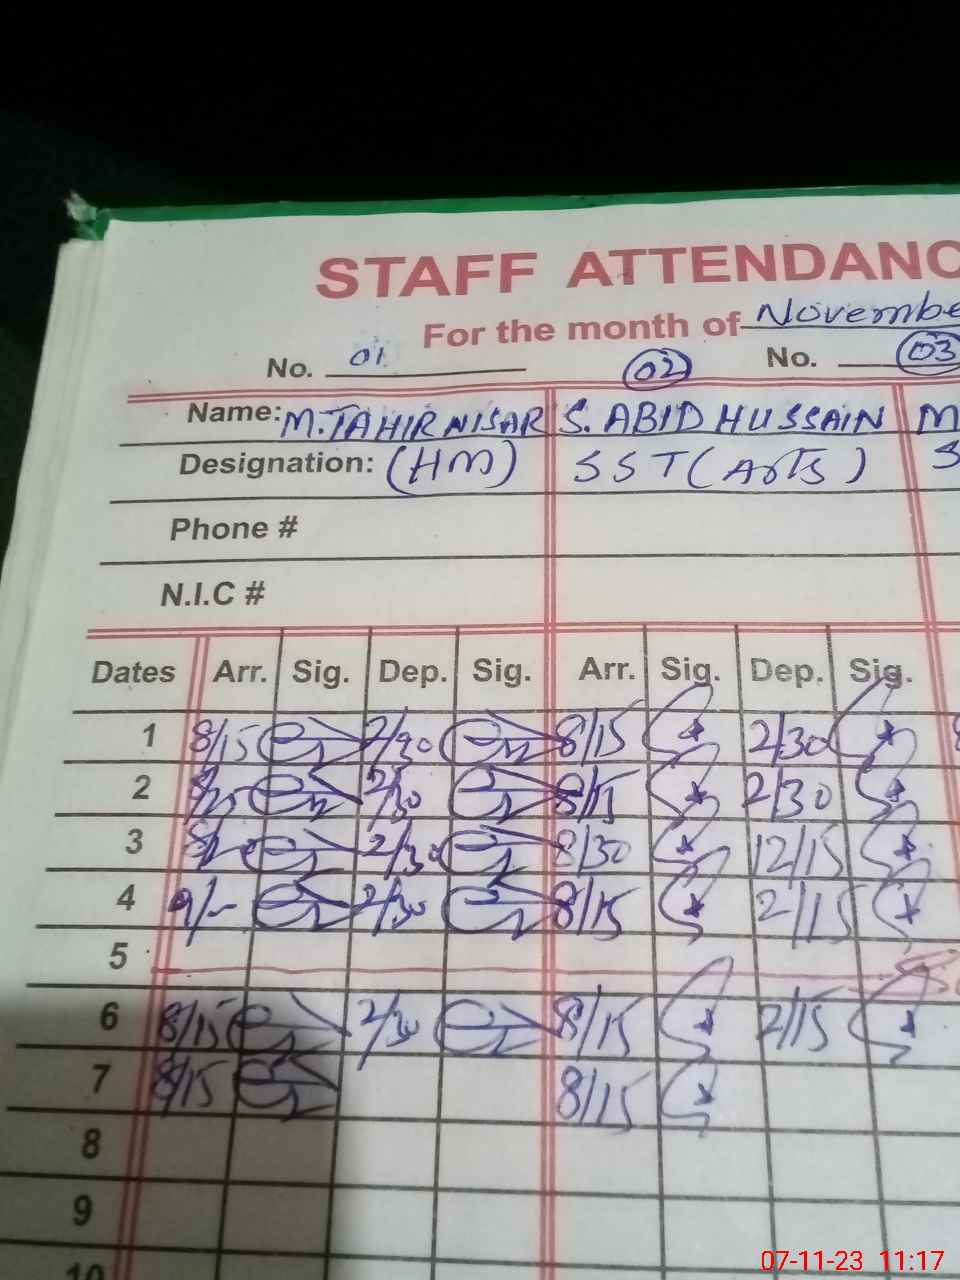 STAFF ATTENDANC
For the month of Novembe
No. 01 02 No. 03
Name: M. TAHIR NISAR S. ABID HUSSAIN M
Designation: (HM) SST (Arts) S
Phone #
N.I.C #
Dates Arr. Sig. Dep. Sig. Arr. Sig. Dep. Sig.
1 8/15 2/30 8/15 2/30
2 2/30 8/15 2/30
3 2/30 8/30 12/15
4 9/- 2/30 8/15 2/15
5
6 8/15 2/30 8/15 2/15
7 8/15 8/15
8
9
10
07-11-23 11:17